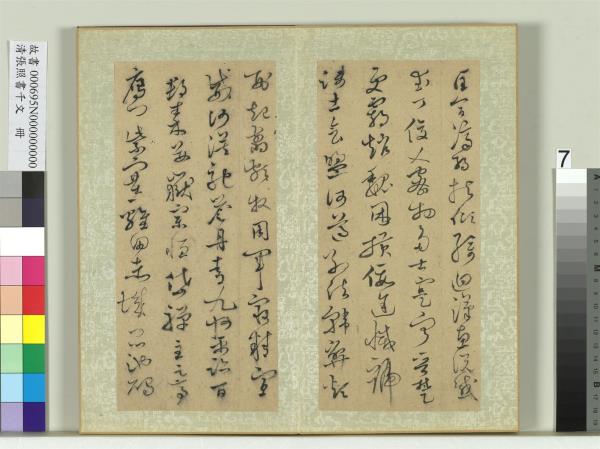 故書 000695N000000000
清張照書千文 冊
匡合濟弱扶傾綺迴漢惠說感
武丁俊乂密勿多士寔寧晉楚
更霸趙魏困橫假途滅虢
踐土會盟何遵約法韓弊煩
刑起翦頗牧用軍最精宣
威沙漠馳譽丹青九州禹跡百
郡秦并嶽宗恆岱禪主云亭
雁門紫塞雞田赤城昆池碣
7